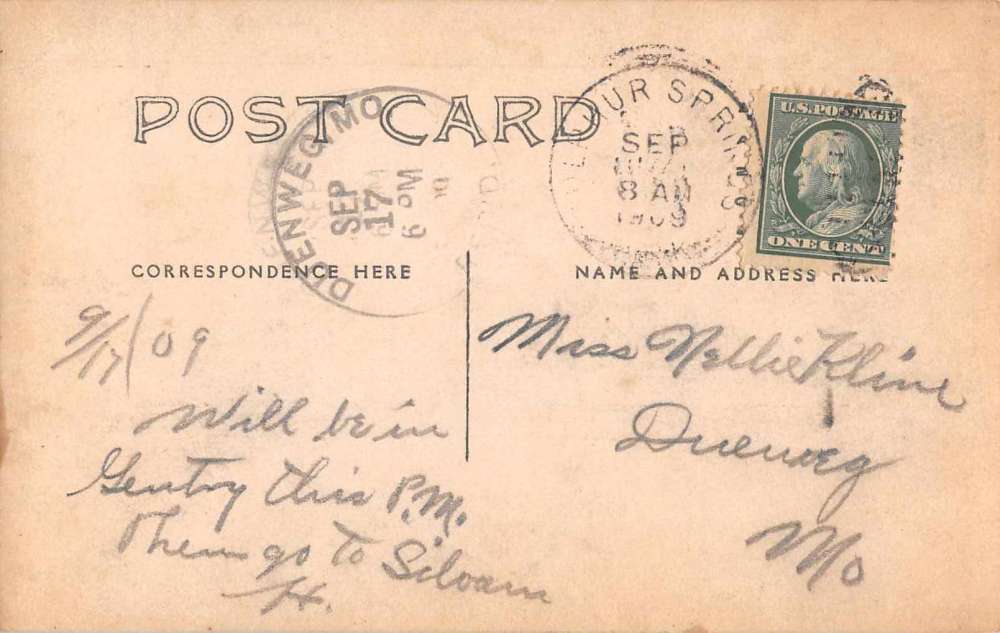 POST CARD
DUENWEG, MO.
SEP
17
6 PM
SULPHUR SPRINGS
SEP
8 AM
1909
U.S. POSTAGE
ONE CENT
CORRESPONDENCE HERE
NAME AND ADDRESS HERE
9/17/09
Will be in
Gentry this P.M.
Then go to Siloam
H.
Miss Nellie Kline
Duenweg
Mo